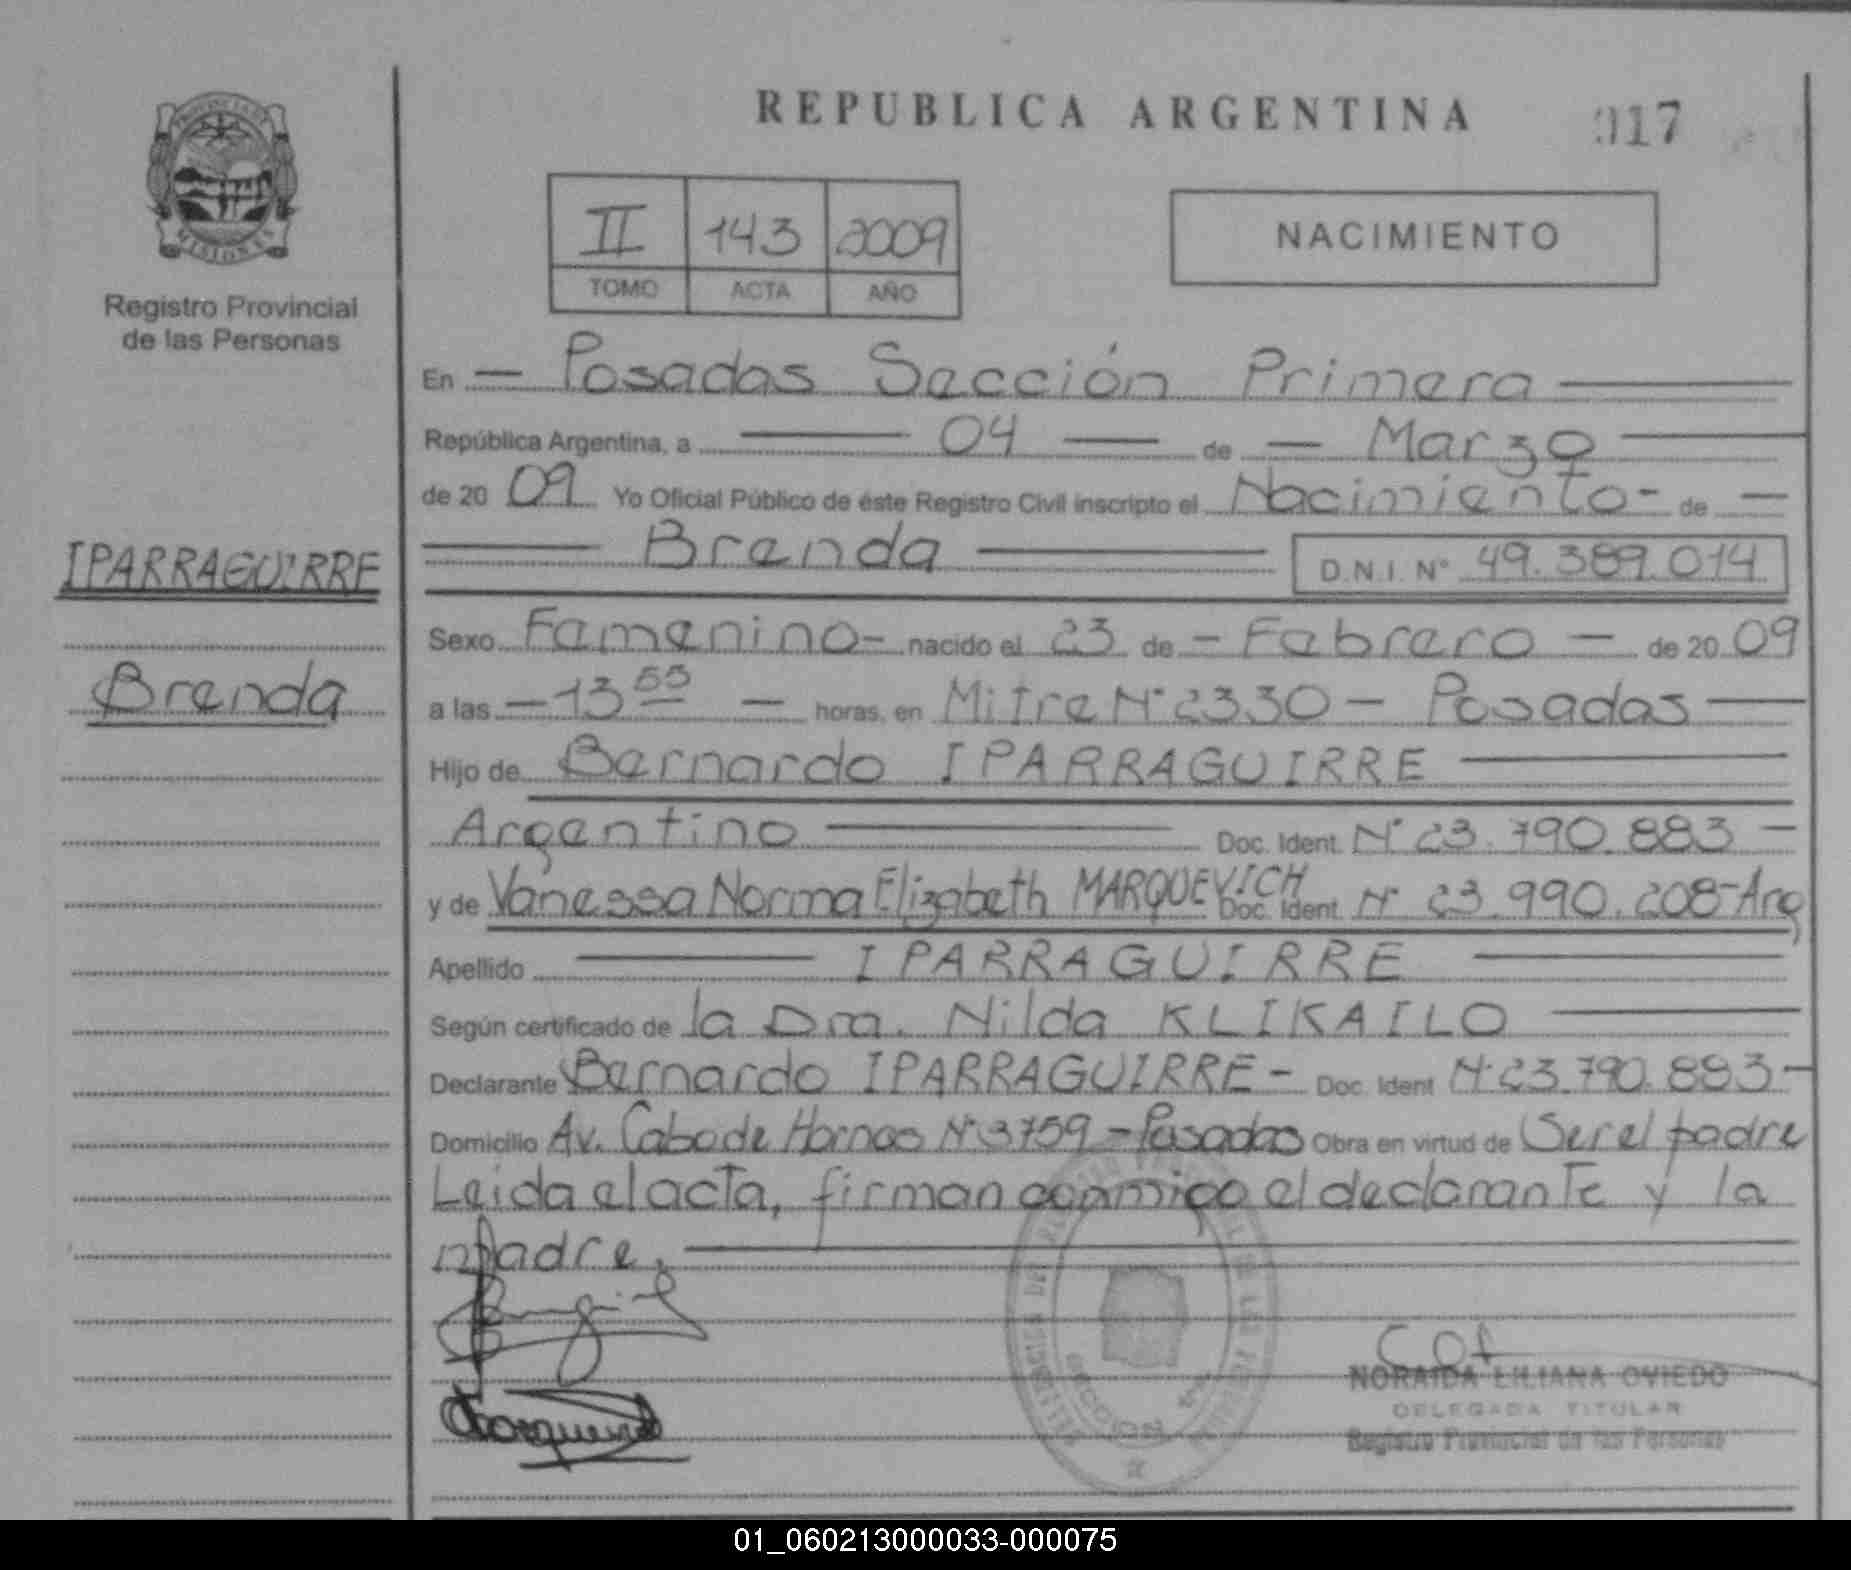 REPUBLICA ARGENTINA
017
PROVINCIA DE MISIONES
Registro Provincial
de las Personas
II 143 2009
TOMO ACTA AÑO
NACIMIENTO
En — Posadas Sección Primera
República Argentina, a 04 de — Marzo
de 2009 Yo Oficial Público de éste Registro Civil inscripto el Nacimiento - de —
Brenda D.N.I. N° 49.389.014
IPARRAGUIRRE
Brenda
Sexo Femenino - nacido el 23 de - Febrero — de 2009
a las — 13 55 — horas, en Mitre N° 2330 — Posadas
Hijo de Bernardo IPARRAGUIRRE
Argentino Doc. Ident. N° 23.790.883 —
y de Vanessa Norma Elizabeth MARQUEVICH Doc. Ident. N° 23.990.208 - Arg
Apellido IPARRAGUIRRE
Según certificado de la Dra. Nilda KLIKAILO
Declarante Bernardo IPARRAGUIRRE - Doc. Ident N° 23.790.883 -
Domicilio Av. Cabo de Hornos N° 3759 - Posadas Obra en virtud de Ser el padre
Leida el acta, firman conmigo el declarante y la
madre.
NORAIDA LILIANA OVIEDO
DELEGADA TITULAR
Registro Provincial de las Personas
01_060213000033-000075